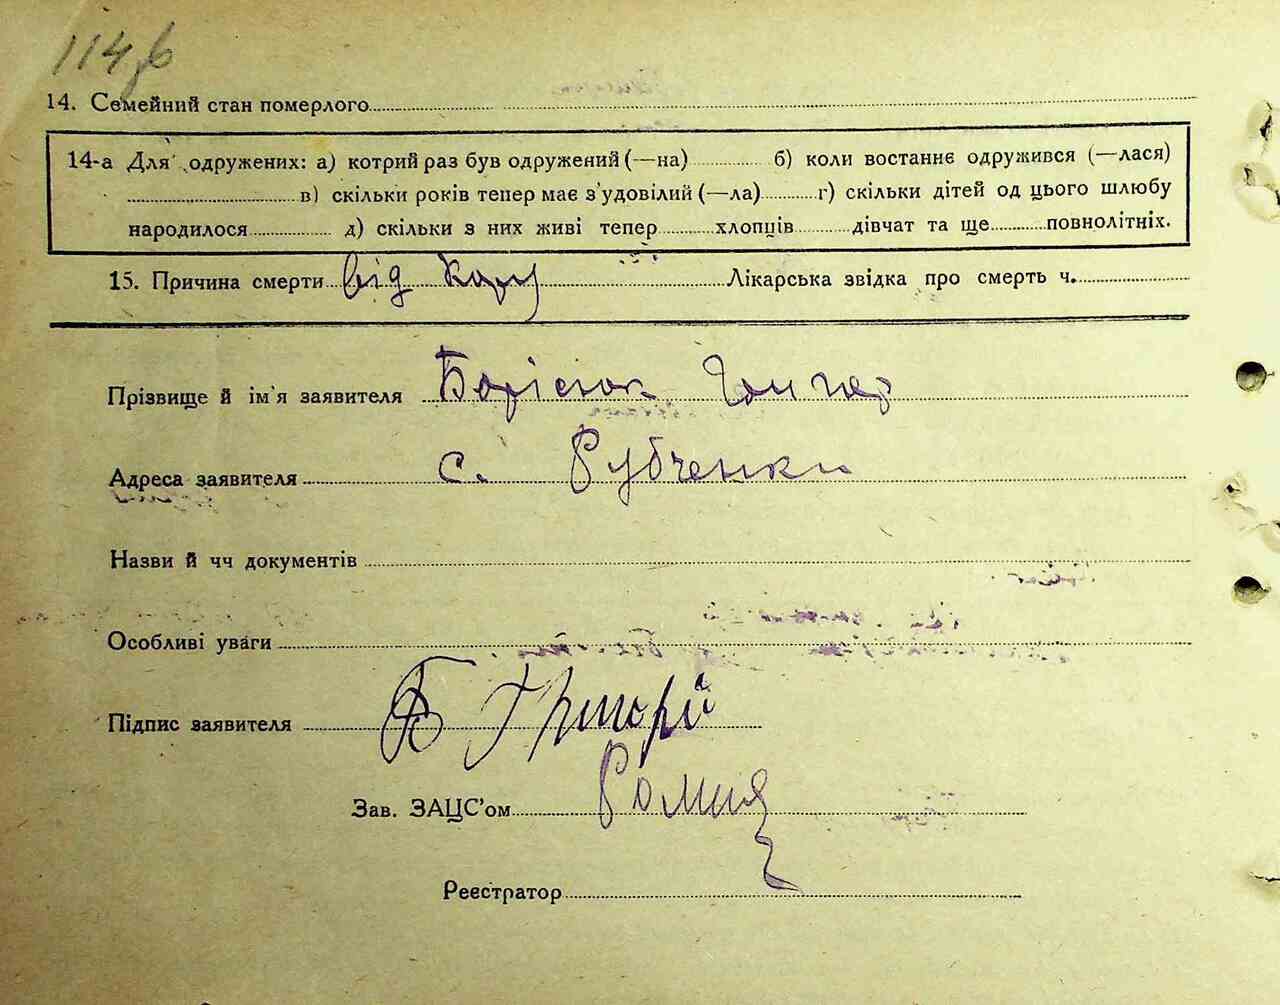 114зв
14. Семейний стан померлого
14-а Для одружених: а) котрий раз був одружений (—на) б) коли востаннє одружився (—лася)
в) скільки років тепер має з'удовілий (—ла) г) скільки дітей од цього шлюбу
народилося д) скільки з них живі тепер хлопців дівчат та ще повнолітніх.
15. Причина смерти від кору Лікарська звідка про смерть ч.
Прізвище й ім'я заявителя Борісюк
Адреса заявителя с. Рубченки
Назви й чч документів
Особливі уваги
Підпис заявителя Б Григорій
Зав. ЗАЦС'ом
Реєстратор